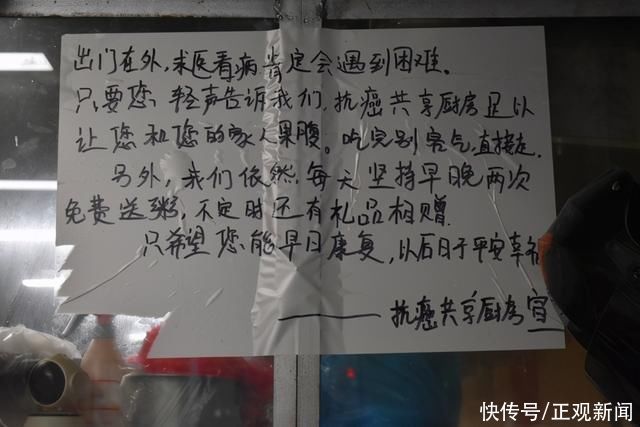 出门在外,求医看病肯定会遇到困难。
只要您轻声告诉我们,抗癌共享厨房足以
让您和您的家人果腹。吃完别客气,直接走.
另外,我们依然每天坚持早晚两次
免费送粥,不定时还有礼品相赠.
只希望您能早日康复,以后日子平安幸福
——抗癌共享厨房宣
快传号/正观新闻